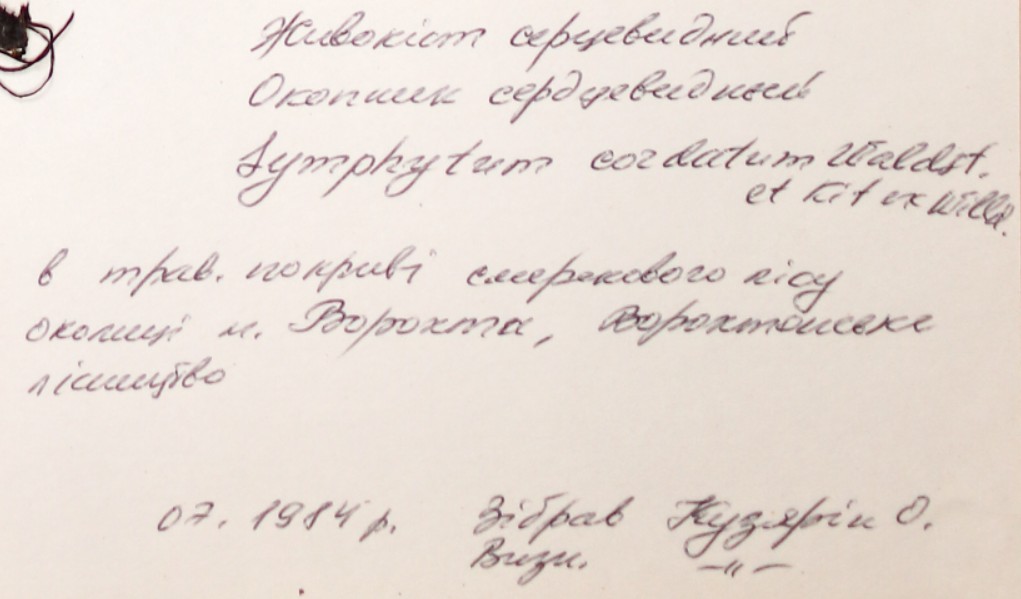 Живокіст серцевидний
Окопник сердцевидный
Symphytum cordatum Waldst.
et Kit ex Willd.
в трав. покриві смерекового лісу
околиці м. Ворохта, Ворохтянське
лісництво
07. 1984 р. Зібрав Кузярін О.
Визн. —"—